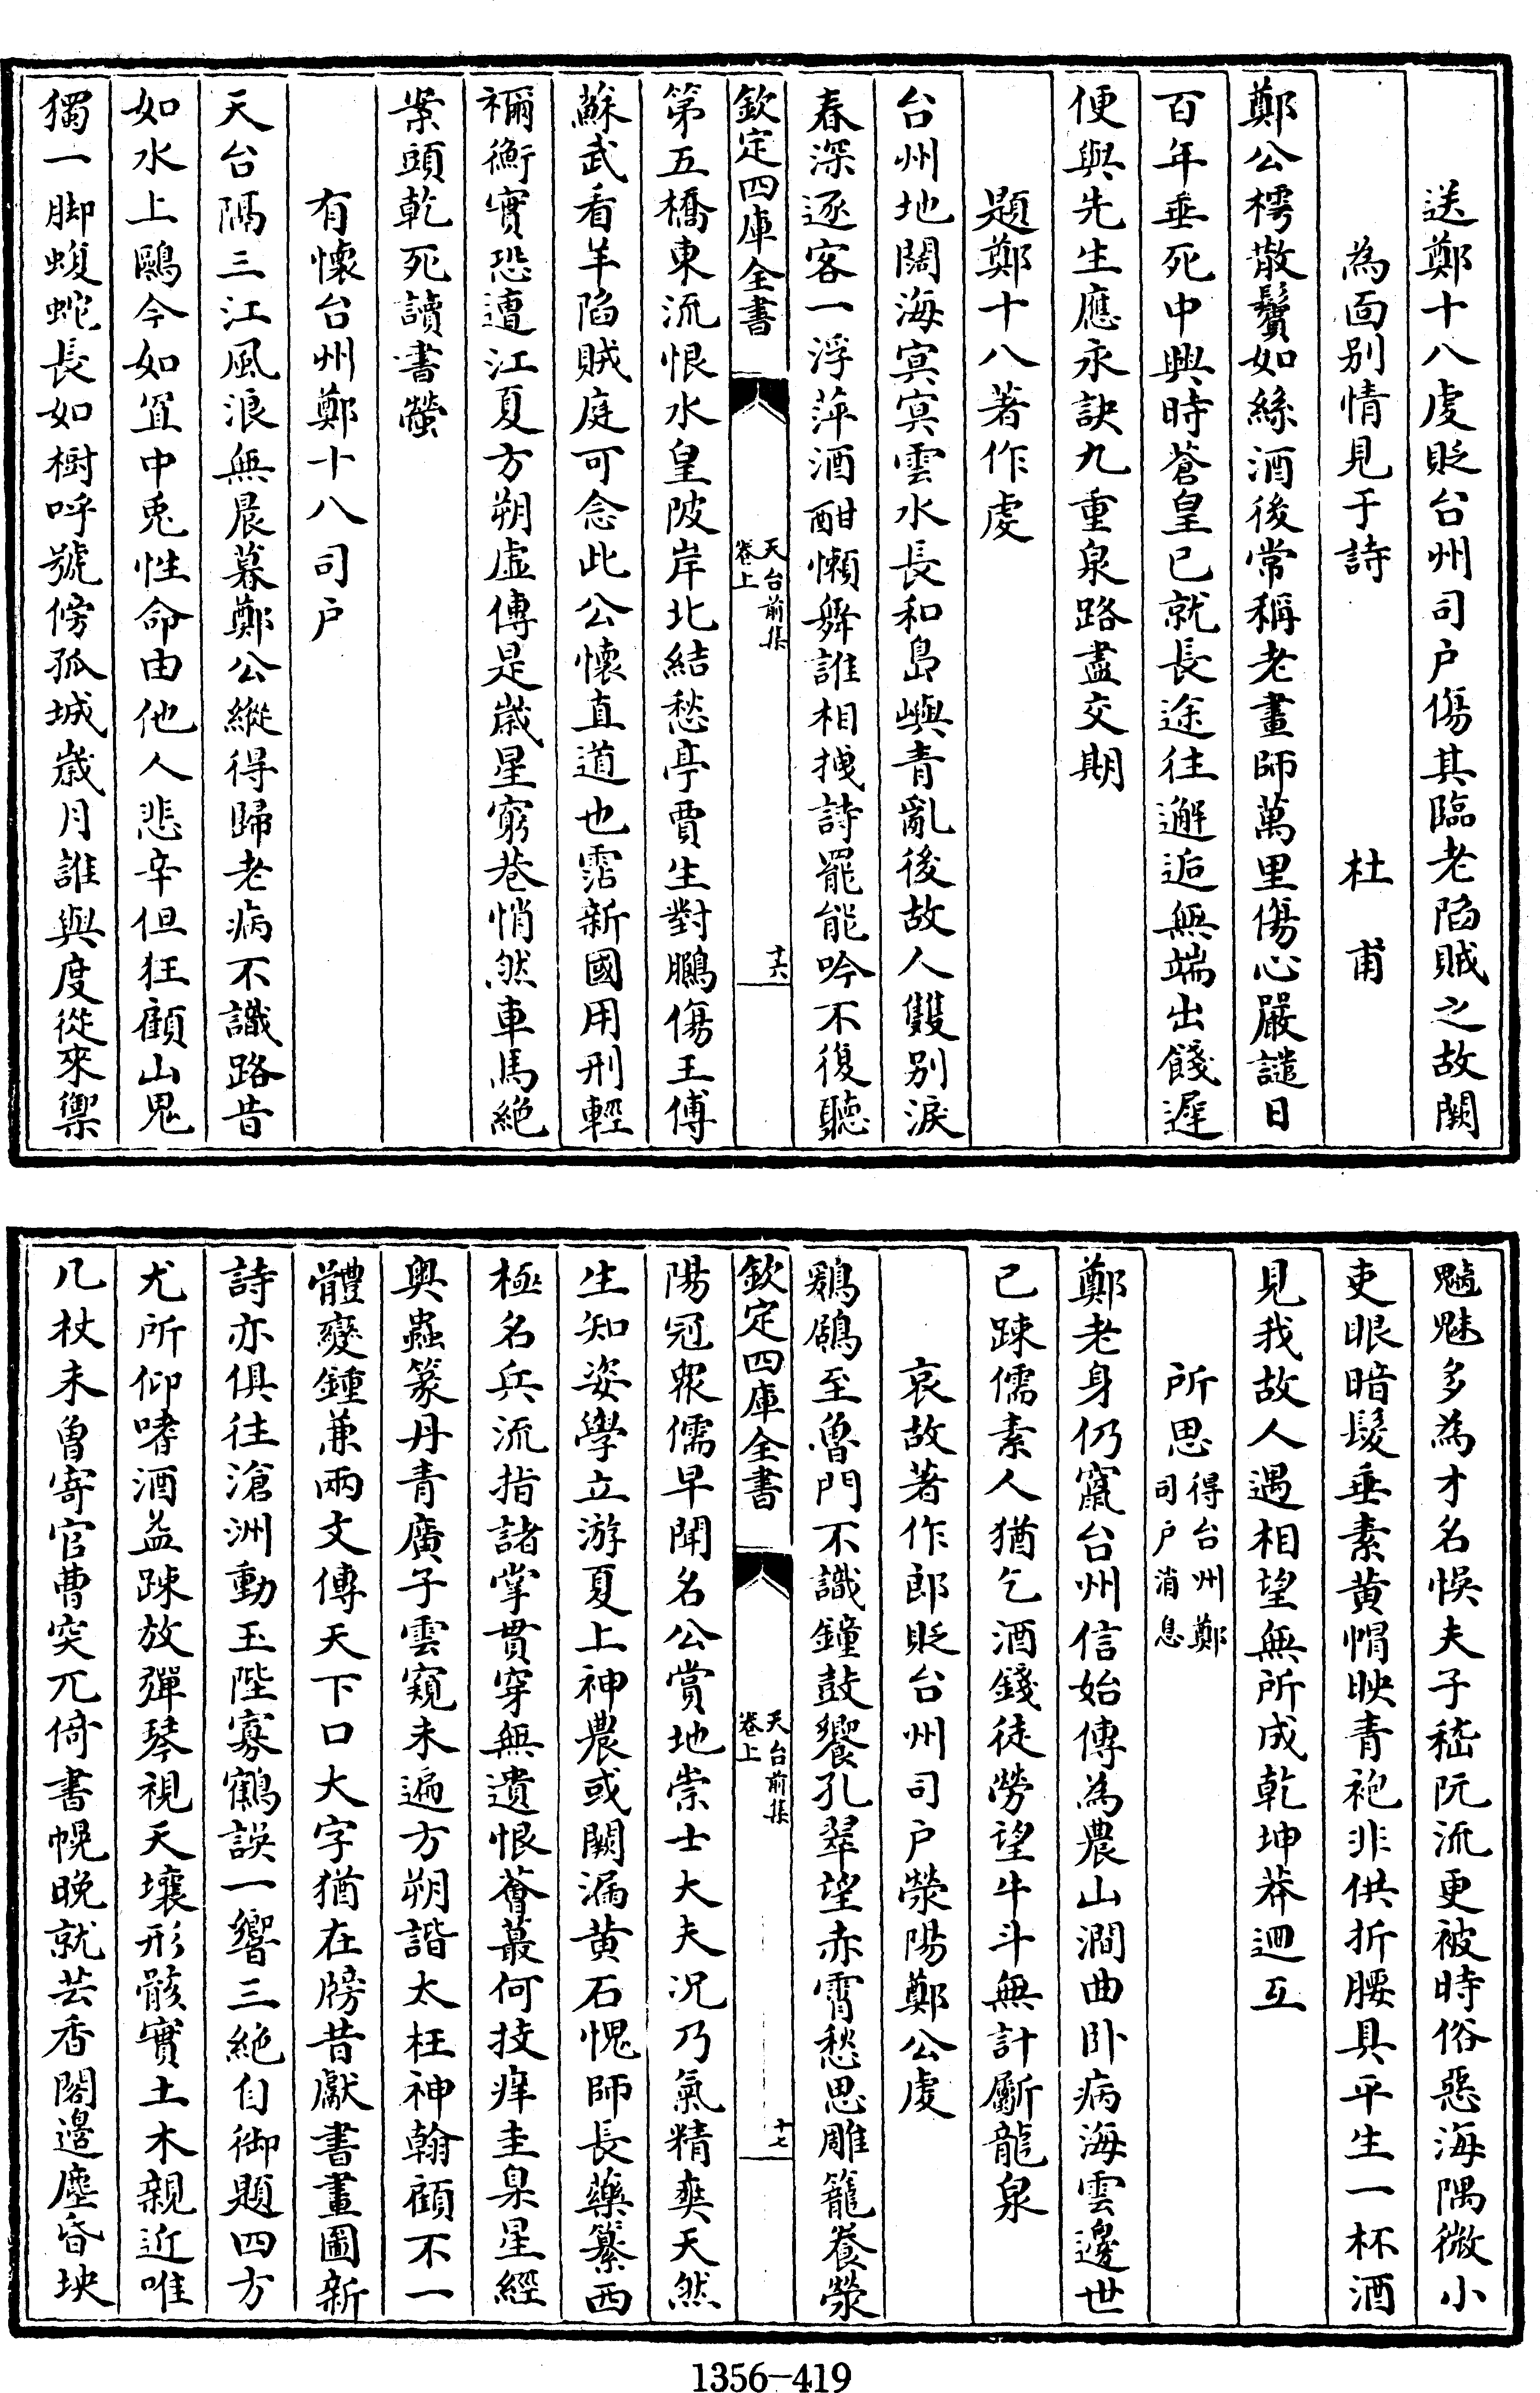 送鄭十八虔貶台州司户傷其臨老陷賊之故闕
為面别情見于詩 杜甫
鄭公樗散鬢如絲酒後常稱老畫師萬里傷心嚴譴日
百年垂死中興時蒼皇已就長途往邂逅無端出餞遲
便與先生應永訣九重泉路盡交期
題鄭十八著作虔
台州地闊海冥冥雲水長和島嶼青亂後故人雙别淚
春深逐客一浮萍酒酣懶舞誰相拽詩罷能吟不復聽
欽定四庫全書
天台前集
卷上
十六
第五橋東流恨水皇陂岸北結愁亭賈生對鵩傷王傅
蘇武看羊陷賊庭可念此公懷直道也霑新國用刑輕
禰衡實恐遭江夏方朔虛傳是歲星窮巷悄然車馬絶
案頭乾死讀書螢
有懷台州鄭十八司户
天台隔三江風浪無晨暮鄭公縱得歸老病不識路昔
如水上鷗今如罝中兎性命由他人悲辛但狂顧山鬼
獨一脚蝮蛇長如樹呼號傍孤城歲月誰與度從來禦
魑魅多為才名悞夫子嵇阮流更被時俗惡海隅微小
吏眼暗髮垂素黄帽映青袍非供折腰具平生一杯酒
見我故人遇相望無所成乾坤莽迴互
所思 得台州鄭
司户消息
鄭老身仍竄台州信始傳為農山澗曲卧病海雲邊世
已踈儒素人猶乞酒錢徒勞望牛斗無計斸龍泉
哀故著作郎貶台州司户滎陽鄭公虔
鶢鶋至魯門不識鐘鼓饗孔翠望赤霄愁思雕籠養滎
欽定四庫全書
天台前集
卷上
十七
陽冠衆儒早聞名公賞地崇士大夫况乃氣精爽天然
生知姿學立游夏上神農或闕漏黄石愧師長藥纂西
極名兵流指諸掌貫穿無遺恨薈蕞何技痒圭臬星經
奥蟲篆丹青廣子雲窺未遍方朔諧太枉神翰顧不一
體變鍾兼兩文傳天下口大字猶在牓昔獻書畫圖新
詩亦俱往滄洲動玉陛寡鶴誤一響三絶自御題四方
尤所仰嗜酒益踈放彈琴視天壤形骸實土木親近唯
几杖未曾寄官曹突兀倚書幌晚就芸香閣邊塵昏坱
1356-419